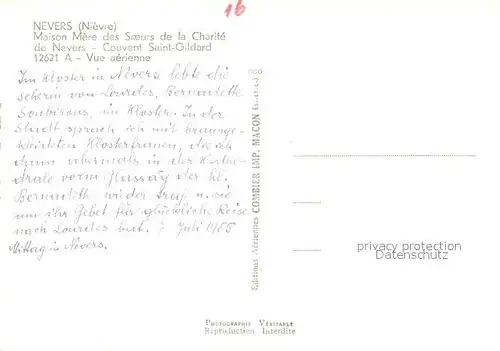 16
NEVERS (Nièvre)
Maison Mère des Sœurs de la Charité
de Nevers - Couvent Saint-Gildard
12621 A - Vue aérienne
Im Kloster in Nevers lebte die
seherin von Lourdes, Bernadette
Soubirous, im Kloster. In der
Stadt sprach ich mit braunge-
kleideten Klosterfrauen, die ich
dann abermals in der Kathe-
drale vorm der hl.
Bernadette wieder traf u. sie
um ihr Gebet für glückliche Reise
nach Lourdes bat. 7 Juli 1958
Mittag in Nevers.
Editions Aériennes COMBIER IMP. MACON
privacy protection
watermark
PHOTOGRAPHIE VÉRITABLE
Reproduction Interdite